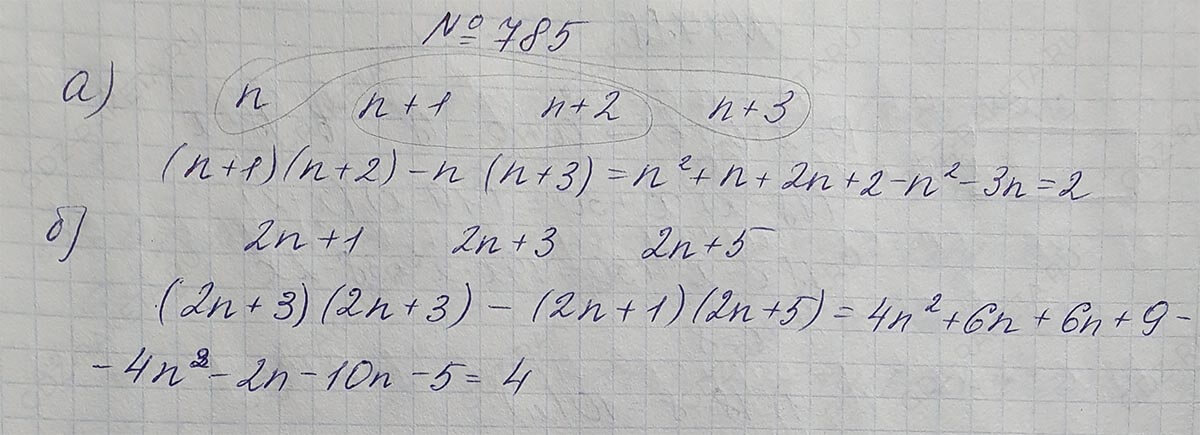 № 785
а) n n+1 n+2 n+3
(n+1)(n+2)-n(n+3)=n²+n+2n+2-n²-3n=2
б) 2n+1 2n+3 2n+5
(2n+3)(2n+3)-(2n+1)(2n+5)=4n²+6n+6n+9-
-4n²-2n-10n-5=4